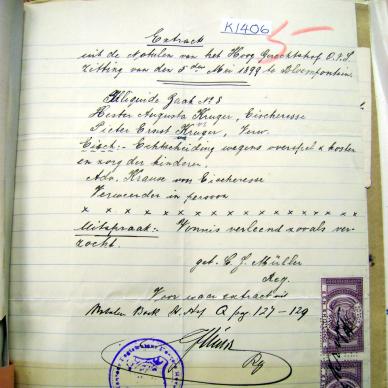 K1406
5
Extrack
uit de Notulen van het Hoog Gerechtshof O.V.S.
zitting van den 5 den Mei 1899 te Bloemfontein.
Zaak No 8
Hester Augusta Kruger, Eischeresse
Pieter Ernst Kruger, Verw.
Eisch:- Echtscheiding wegens overspel & kosten
en zorg der kinderen.
Adv. Krause voor Eischeresse
Verweerder in persoon
x x x x x x x x x x x x x
Uitspraak:- Vonnis verleend zooals ver-
zocht.
get. C. J. Müller
Reg.
Voor waar extract uit
Notulen Boek H. Hof Q pag 127-129
Rg